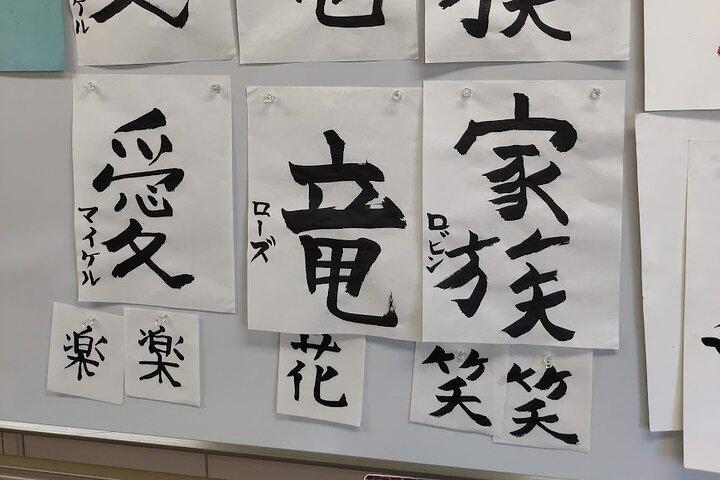 ケル
愛
マイケル
竜
ローズ
家族
ロビン
楽
楽
花
笑
笑